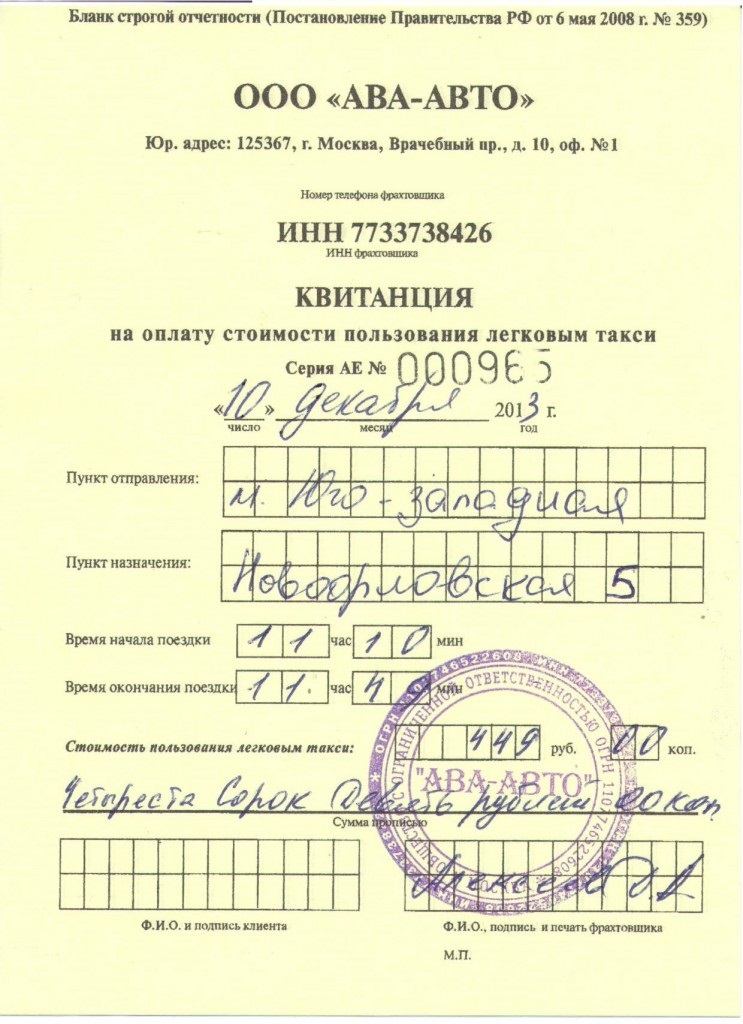 Бланк строгой отчетности (Постановление Правительства РФ от 6 мая 2008 г. № 359)
ООО «АВА-АВТО»
Юр. адрес: 125367, г. Москва, Врачебный пр., д. 10, оф. №1
Номер телефона фрахтовщика
ИНН 7733738426
ИНН фрахтовщика
КВИТАНЦИЯ
на оплату стоимости пользования легковым такси
Серия АЕ № 000965
«10» декабря 2013 г.
число месяц год
Пункт отправления: м. Юго-западная
Пункт назначения: Новоорловская 5
Время начала поездки 11 час 10 мин
Время окончания поездки 11 час 49 мин
Стоимость пользования легковым такси: 449 руб. 00 коп.
Четыреста Сорок Девять рублей 00 коп
Сумма прописью
"АВА-АВТО"
ОГРН 1107746522608
Ф.И.О. и подпись клиента
Ф.И.О., подпись и печать фрахтовщика
М.П.